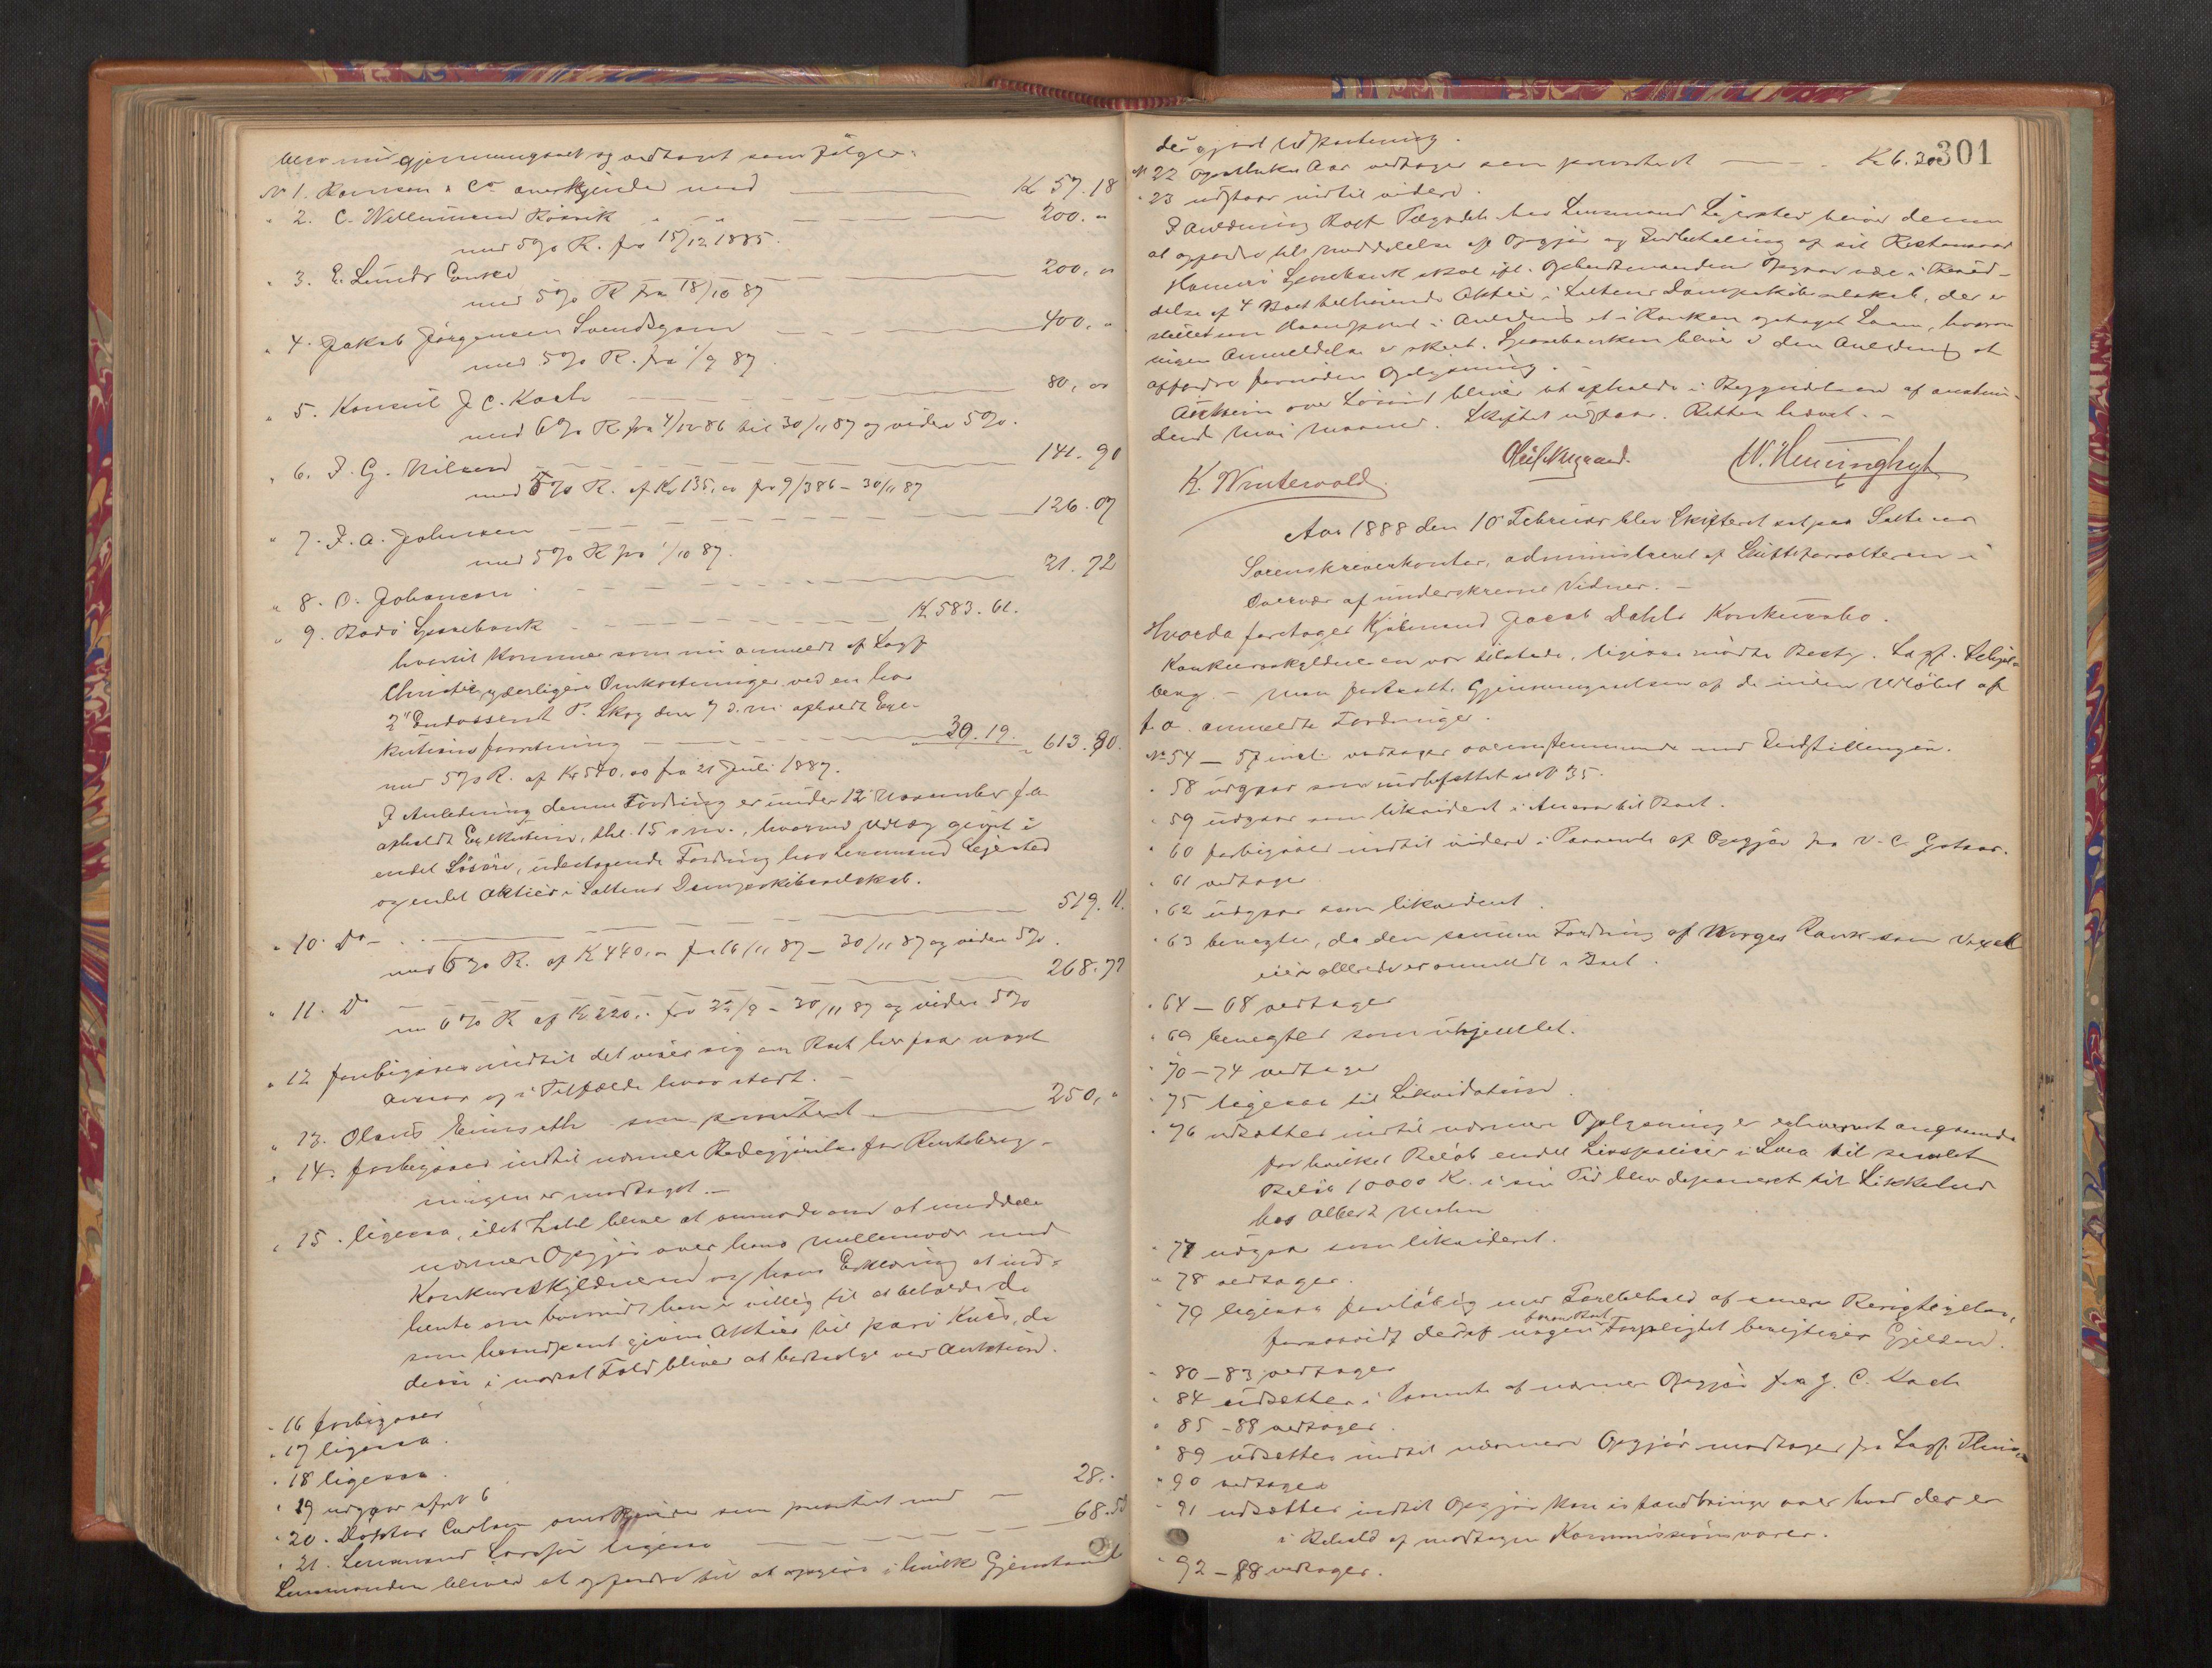 blev nu gjennemgaaet og vedtaget som følger:
No 1. & Co anerkjendes med K 57.18
" 2. C. Wellumsens " " 200. "
med 5% R. fra 15/12 1885.
" 3. E. Lunds Enke 200, "
med 5% R fra 18/10 87
" 4. Jakob Jörgensen 400, "
med 5% R. fra 1/9 87
" 5. Konsul J C. Koch 80, 00
med 6% R fra 4/10 86 til 30/11 87 og videre 5%.
" 6. J. G. Nilsens 141. 90
med 5% R. af Kr 135, 00 fra 9/3 86 - 30/11 87
" 7. J. A. Johnsen 126. 07
med 5% R fra 1/10 87.
" 8. O. Johansen 31. 72
" 9. Bodö Sparebank K 583. 61.
hvortil kommer som nu anmeldt af Sagf
Christie, yderligere Omkostninger ved en hos
2' Endossent P. Skog den 7 d. m. afholdt Exe-
kutionsforretning 30. 19. " 613. 80.
med 5% R. af Kr 540. 00 fra 21 Juli 1887.
I Anledning denne Fordring er under 12 November f. a.
afholdt Exekution, thl. 15 s. m., hvorved Udlæg gjort i
endel Lösöre, udestaaende Fordring hos Lensmand Lejersted
og endel Aktier i Saltens Dampskibsselskab.
" 10. Do 519. 11.
med 6% R. af K 440, " fra 16/11 87 - 30/11 87 og videre 5%.
" 11. Do 268. 77
med 6% R. af K 220, " fra 22/8 - 30/11 87 og videre 5%
" 12 forbigaaes indtil det viser sig om Boet her faar noget
Ansvar og i Tilfælde hvor stort. -
" 13. Olaus som prioriteret 250, "
" 14. forbigaaes indtil nærmere Redegjörelse for Renteberegn-
ningen er modtaget. -
" 15. ligesaa, idet bliver at anmode om at meddele
nærmere Opgjör over hans Mellemvær med
Konkursskyldneren og hans Erklæring at ind-
hente om hvorvidt han er villig til at beholde de
som haandpant givne Aktier til pari Kurs, da
disse i modsat Fald bliver at bortsælge ved Auktion.
" 16 forbigaaes
" 17 ligesaa.
" 18 ligesaa.
" 19 udgaar efter 6
" 20. Doktor Carlsen anerkjendes som prioriteret med 28. "
" 21. Lensmand ligesaa 68.
Lensmanden bliver at opfordre til at opgive i hvilke Gjenstande
301
der gjort Udpantning.
No 22 Apotheker Aas vedtages som prioriteret K 6. 30
" 23 udstaar indtil videre.
I Anledning Boets hos Lensmand Lejersted bliver denne
at opfordre til Meddelelse af Opgjör og Indbetaling af sit Restansvar
Hamarö Sparebank skal ifl. Opbudsmandens Opgave være i Besid-
delse af 4 Boet tilhörende Aktier i Saltens Dampskibsselskab, der er
stillet som Haandpant i Anledning et i Banken optaget Laan, hvorom
ingen Anmeldelse er skeet. Sparebanken bliver i den Anledning at
opfordre fornöden Oplysning. -
Auktion over Lösöret bliver at afholde i Begyndelsen af anstun-
dende Mai Maaned. Skiftet udstaar. Retten hævet. -
K. Wintervold
W.
Aar 1888 den 10 Februar blev Skifteret sat paa Saltens
Sorenskriverkontor, administreret af Skifteforvalteren i
Overvær af underskrevne Vidner. -
Hvorda foretoges Kjöbmand Jacob Dahls Konkursbo.
Konkursskyldneren var tilstede, ligesaa mödte Besty. Sagf.
berg. - Man fortsatte Gjennemgaaelsen af de inden Udlöbet af
f. a. anmeldte Fordringer.
No 54 - 57 incl. vedtages overensstemmende med Indstillingen.
" 58 udgaar som indbefattet i No 35.
" 59 udgaar som likvideret i Ansvar til Boet.
" 60 forbigaaes indtil videre i Paavente af Opgjör fra
" 61 vedtages
" 62 udgaar som likvideret.
" 63 benegtes, da den samme Fordring af Norges Bank som Vexel
eier allerede er anmeldt i Boet.
" 64 - 68 vedtages
" 69 benegtes som uhjemlet.
" 70 - 74 vedtages
" 75 ligesaa til Likvidation.
" 76 udsættes indtil nærmere Oplysning er erhvervet angaaende
for hvilket Belöb endel Livspolicer i til samlet
Belöb 10000 K. i sin Tid blev deponeret til Sikkerhed
hos Albert
" 77 udgaar som likvideret.
" 78 vedtages.
" 79 ligesaa forelöbig med Forbehold af senere Berigtigelse,
forsaavidt deraf nogen Forpligtet berigtiger Gjelden.
" 80 - 83 vedtages
" 84 udsættes i Paavente af nærmere Opgjör fra J. C. Koch
" 85 - 88 vedtages.
" 89 udsættes indtil nærmere Opgjör modtages fra Sagf.
" 90 vedtages
" 91 udsættes indtil Opgjör kan istandbringes over hvad der er
i Behold af modtagne Kommissionsvarer.
" 92 - 98 vedtages.